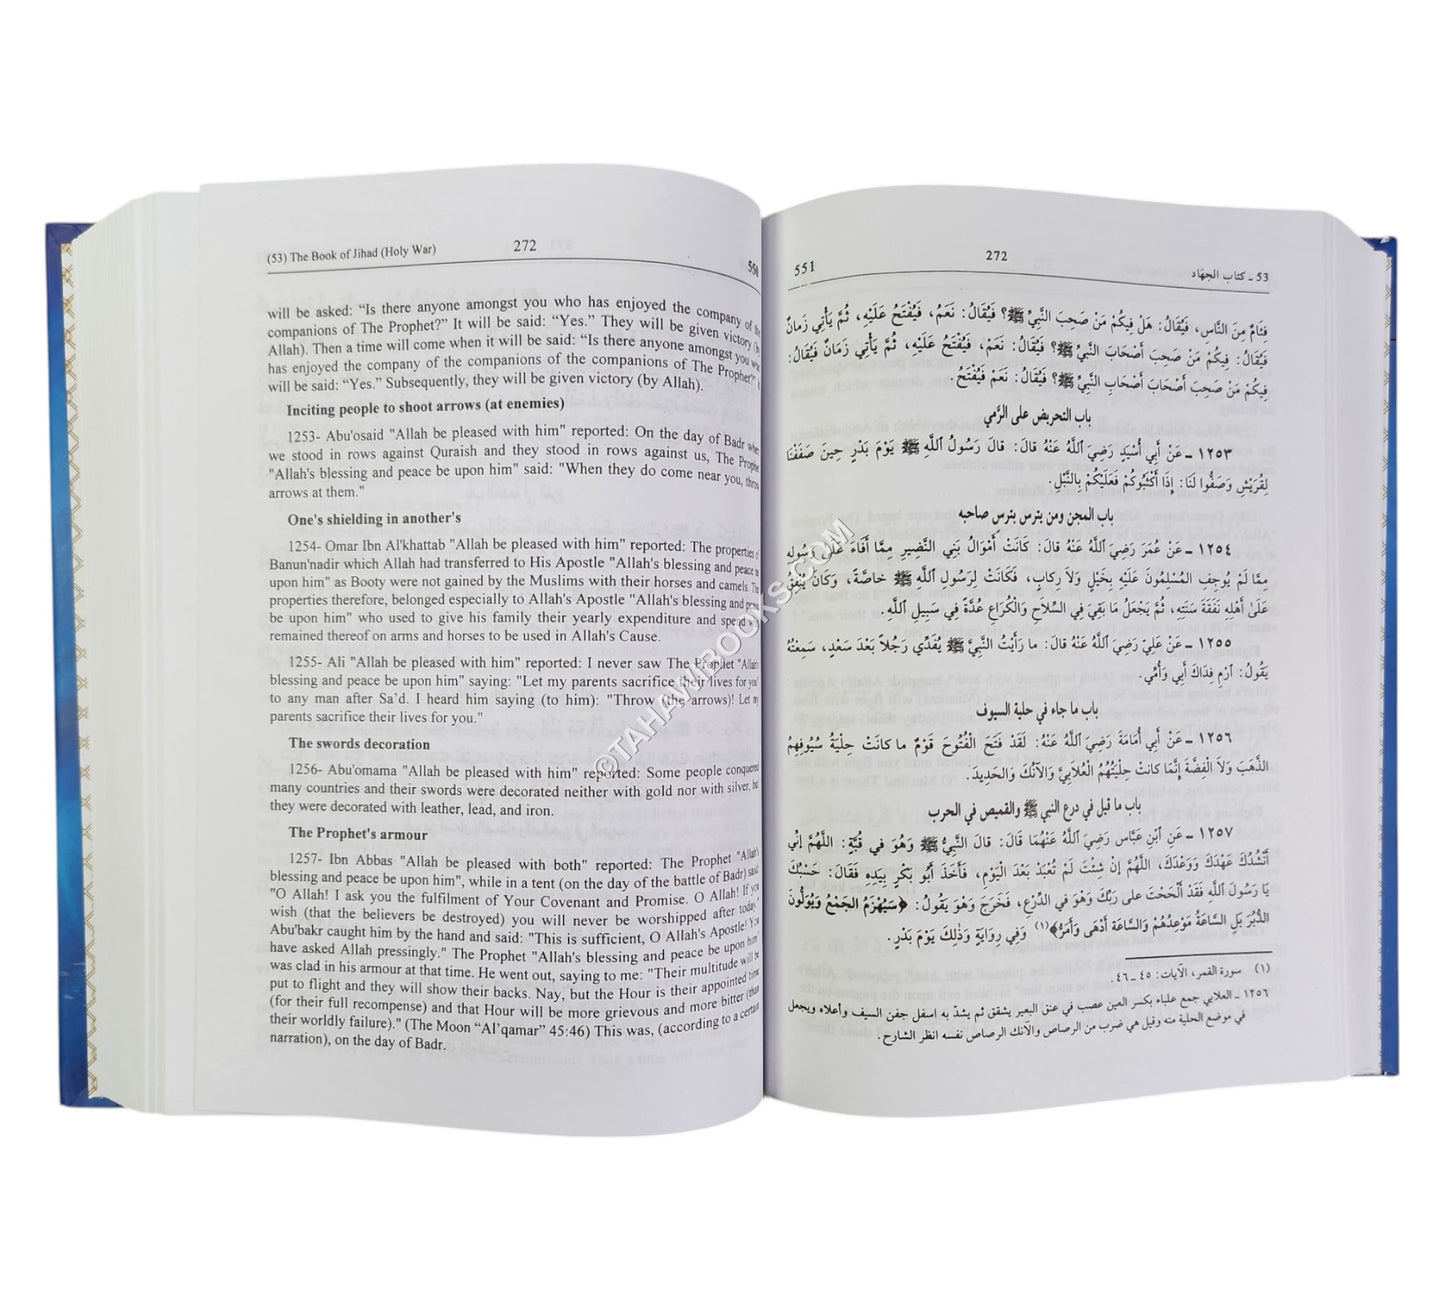 (53) The Book of Jihad (Holy War) 272 550
will be asked: “Is there anyone amongst you who has enjoyed the company of the
companions of The Prophet?” It will be said: “Yes.” They will be given victory (by
Allah). Then a time will come when it will be said: “Is there anyone amongst you who
has enjoyed the company of the companions of the companions of The Prophet?”
will be said: “Yes.” Subsequently, they will be given victory (by Allah).
Inciting people to shoot arrows (at enemies)
1253- Abu'osaid "Allah be pleased with him" reported: On the day of Badr when
we stood in rows against Quraish and they stood in rows against us, The Prophet
"Allah's blessing and peace be upon him" said: "When they do come near you, throw
arrows at them."
One's shielding in another's
1254- Omar Ibn Al'khattab "Allah be pleased with him" reported: The properties of
Banun'nadir which Allah had transferred to His Apostle "Allah's blessing and peace be
upon him" as Booty were not gained by the Muslims with their horses and camels. The
properties therefore, belonged especially to Allah's Apostle "Allah's blessing and peace
be upon him" who used to give his family their yearly expenditure and spend
remained thereof on arms and horses to be used in Allah's Cause.
1255- Ali "Allah be pleased with him" reported: I never saw The Prophet "Allah's
blessing and peace be upon him" saying: "Let my parents sacrifice their lives for you"
to any man after Sa’d. I heard him saying (to him): "Throw (the arrows)! Let my
parents sacrifice their lives for you."
The swords decoration
1256- Abu'omama "Allah be pleased with him" reported: Some people conquered
many countries and their swords were decorated neither with gold nor with silver, but
they were decorated with leather, lead, and iron.
The Prophet's armour
1257- Ibn Abbas "Allah be pleased with both" reported: The Prophet "Allah's
blessing and peace be upon him", while in a tent (on the day of the battle of Badr) said:
"O Allah! I ask you the fulfilment of Your Covenant and Promise. O Allah! If you
wish (that the believers be destroyed) you will never be worshipped after today."
Abu'bakr caught him by the hand and said: "This is sufficient, O Allah's Apostle! You
have asked Allah pressingly." The Prophet "Allah's blessing and peace be upon him"
was clad in his armour at that time. He went out, saying to me: "Their multitude will be
put to flight and they will show their backs. Nay, but the Hour is their appointed time
(for their full recompense) and that Hour will be more grievous and more bitter (than
their worldly failure)." (The Moon “Al’qamar” 45:46) This was, (according to a certain
narration), on the day of Badr.
53 ـ كتاب الجهاد 272 551
فِئَامٌ مِنَ النَّاسِ، فَيُقَالُ: هَلْ فِيكُمْ مَنْ صَحِبَ النَّبِيَّ ﷺ؟ فَيُقَالُ: نَعَمْ، فَيُفْتَحُ عَلَيْهِ، ثُمَّ يَأْتِي زَمَانٌ
فَيُقَالُ: فِيكُمْ مَنْ صَحِبَ أَصْحَابَ النَّبِيِّ ﷺ؟ فَيُقَالُ: نَعَمْ، فَيُفْتَحُ عَلَيْهِ، ثُمَّ يَأْتِي زَمَانٌ فَيُقَالُ:
فِيكُمْ مَنْ صَحِبَ أَصْحَابَ أَصْحَابِ النَّبِيِّ ﷺ؟ فَيُقَالُ: نَعَمْ فَيُفْتَحُ.
باب التحريض على الرَّمي
١٢٥٣ ـ عَنْ أَبِي أُسَيْدٍ رَضِيَ اللَّهُ عَنْهُ قَالَ: قالَ رَسُولُ اللَّهِ ﷺ يَوْمَ بَدْرٍ حِينَ صَفَفْنَا
لِقُرَيْشٍ وَصَفُّوا لَنَا: إِذَا أَكْثَبُوكُمْ فَعَلَيْكُمْ بِالنَّبْلِ.
باب المجن ومن يترس بترس صاحبه
١٢٥٤ ـ عَنْ عُمَرَ رَضِيَ اللَّهُ عَنْهُ قَالَ: كَانَتْ أَمْوَالُ بَنِي النَّضِيرِ مِمَّا أَفَاءَ اللَّهُ عَلَى رَسُولِهِ
مِمَّا لَمْ يُوجِفِ المُسْلِمُونَ عَلَيْهِ بِخَيْلٍ وَلاَ رِكابٍ، فَكَانَتْ لِرَسُولِ اللَّهِ ﷺ خاصَّةً، وَكَانَ يُنْفِقُ
عَلَى أَهْلِهِ نَفَقَةَ سَنَتِهِ، ثُمَّ يَجْعَلُ مَا بَقِيَ فِي السِّلاَحِ وَالْكُرَاعِ عُدَّةً فِي سَبِيلِ اللَّهِ.
١٢٥٥ ـ عَنْ عَلِيٍّ رَضِيَ اللَّهُ عَنْهُ قالَ: ما رَأَيْتُ النَّبِيَّ ﷺ يُفَدِّي رَجُلاً بَعْدَ سَعْدٍ، سَمِعْتُهُ
يَقُولُ: ارْمِ فِدَاكَ أَبِي وَأُمِّي.
باب ما جاء في حلية السيوف
١٢٥٦ ـ عَنْ أَبِي أُمَامَةَ رَضِيَ اللَّهُ عَنْهُ: لَقَدْ فَتَحَ الْفُتُوحَ قَوْمٌ ما كانَتْ حِلْيَةُ سُيُوفِهِمُ
الذَّهَبَ وَلاَ الْفِضَّةَ إِنَّمَا كانَتْ حِلْيَتُهُمُ الْعَلاَبِيَّ وَالآنُكَ وَالحَدِيدَ.
باب ما قيل في درع النبي ﷺ والقميص في الحرب
١٢٥٧ ـ عَنِ ابْنِ عَبَّاسٍ رَضِيَ اللَّهُ عَنْهُمَا قَالَ: قالَ النَّبِيُّ ﷺ وَهُوَ في قُبَّةٍ: اللَّهُمَّ إِنِّي
أَنْشُدُكَ عَهْدَكَ وَوَعْدَكَ، اللَّهُمَّ إِنْ شِئْتَ لَمْ تُعْبَدْ بَعْدَ الْيَوْمِ، فَأَخَذَ أَبُو بَكْرٍ بِيَدِهِ فَقَالَ: حَسْبُكَ
يَا رَسُولَ اللَّهِ فَقَدْ أَلْحَحْتَ عَلى رَبِّكَ وَهُوَ في الدِّرْعِ، فَخَرَجَ وَهُوَ يَقُولُ: ﴿سَيُهْزَمُ الجَمْعُ وَيُوَلُّونَ
الدُّبُرَ بَلِ السَّاعَةُ مَوْعِدُهُمْ وَالسَّاعَةُ أَدْهَى وَأَمَرُّ﴾(١) وَفِي رِوَايَةٍ وَذٰلِكَ يَوْمَ بَدْرٍ.
(١) سورة القمر، الآيات: ٤٥ ـ ٤٦.
١٢٥٦ ـ العلابي جمع علباء بكسر العين عصب في عنق البعير يشقق ثم يشدّ به اسفل جفن السيف وأعلاه ويجعل
في موضع الحلية منه وقيل هي ضرب من الرصاص والآنك الرصاص نفسه انظر الشارح.
©TAHAWIBOOKS.COM